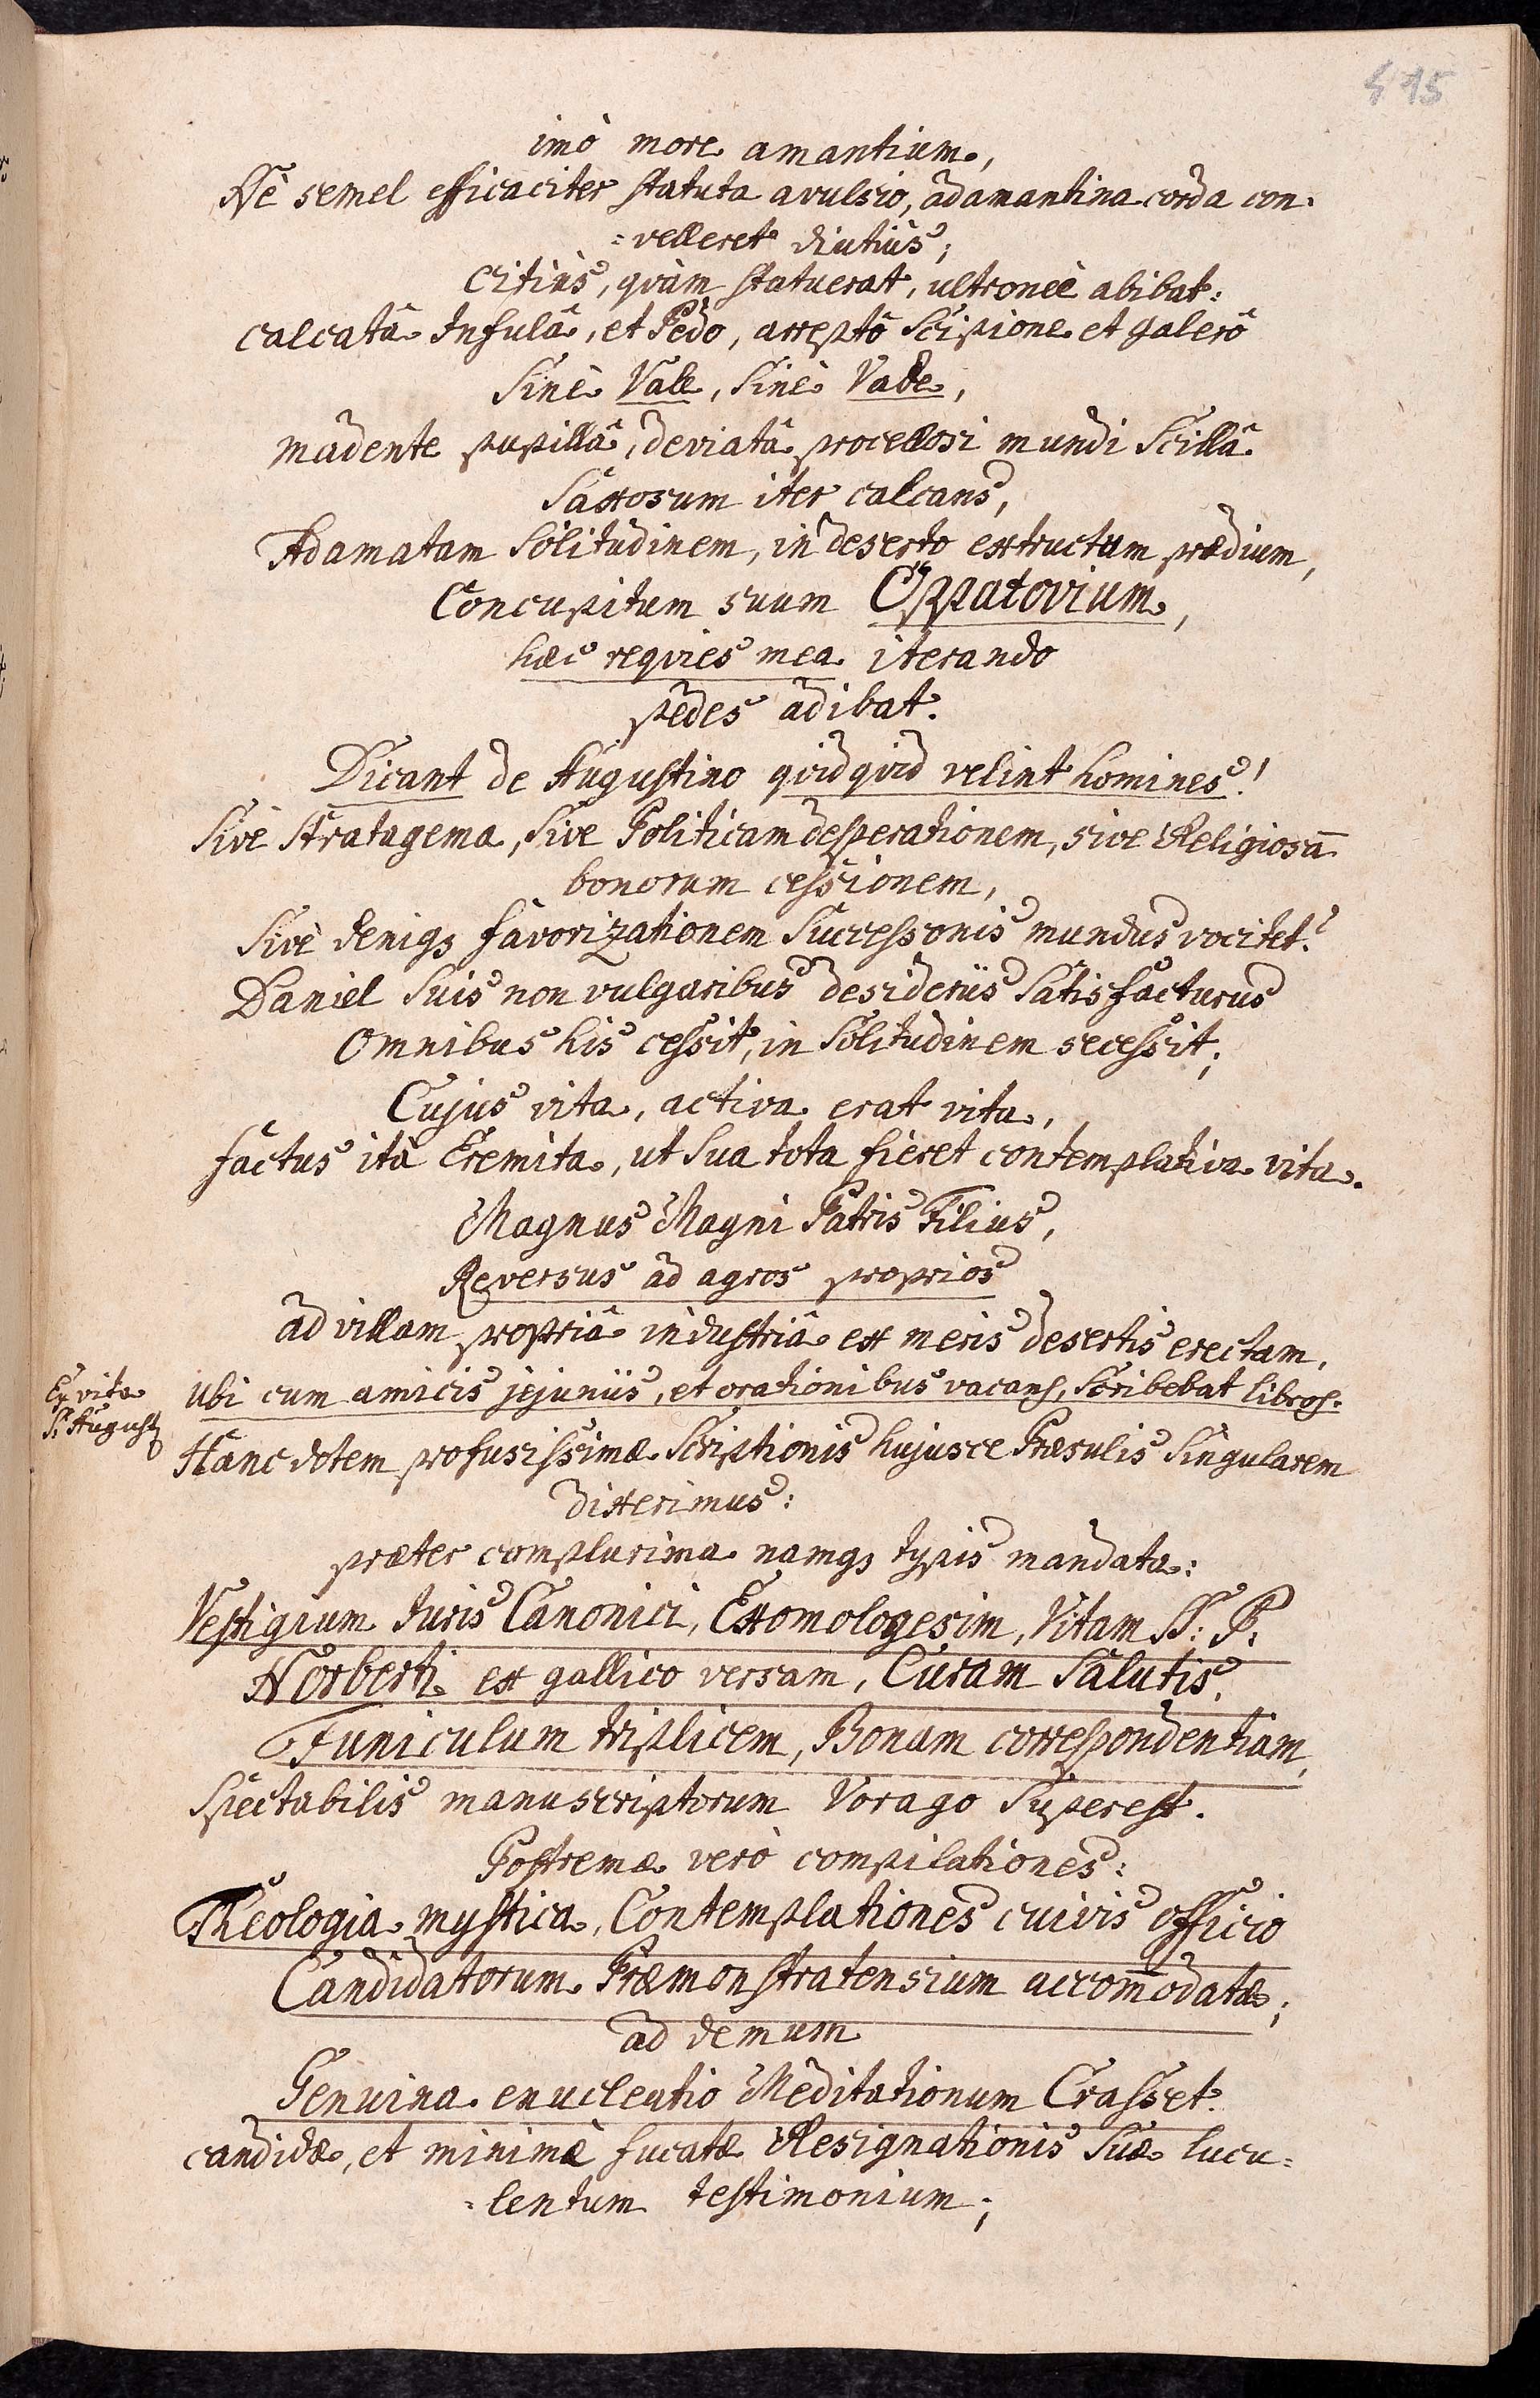 415
imò more amantium,
Nè semel efficaciter statuta avulsio, adamantina corda con-
=velleret diutiùs;
citiùs, quàm statuerat, ultroneè abibat:
calcatâ Infulâ, et Pedo, arreptô Scipione et galerô
Sinè Vale, Sinè Vade,
madente pupillâ, deviatâ procellosi mundi Scillâ
Saxosum iter calcans,
Adamatam Solitudinem, in deserto extructum prædium,
Concupitum suum Oppatovium,
hæc requies mea iterando
pedes adibat.
Dicant de Augustino quidquid velint homines!
Sivè Stratagema, Sive Politicam desperationem, sive Religiosam̄
bonorum cessionem,
Sivè deniq; favorizationem Successoris mundus vocitet?
Daniel Suis non vulgaribus desideriis Satisfacturus
Omnibus his cessit, in Solitudinem secessit;
Cujus vita, activa erat vita,
factus ità Eremita, ut Sua tota fieret contemplativa vita.
Magnus Magni Patris Filius,
Reversus ad agros proprios
ad villam propriâ industriâ ex meris desertis erectam,
Ex vita
S. August
Ubi cum amicis jejuniis, et orationibus vacans, Scribebat libros.
Hanc dotem profusissimæ Scriptionis hujusce Præsulis Singularem
dixerimus:
præter complurima namq; typis mandata:
Vestigium Iuris Canonici, Exomologesim, Vitam S: P:
Norberti ex gallico versam, Curam Salutis,
Funiculum triplicem, Bonam correspondentiam,
Spectabilis manuscriptorum Vorago Superest.
Postremæ verò compilationes:
Theologia mystica, Contemplationes cuivis officio
Candidatorum Præmonstratensium accom̄odatæ;
ad demum
Genuina enucleatio Meditationum Crasset
candidæ, et minimè fucatæ Resignationis Suæ lucu=
-lentum testimonium;